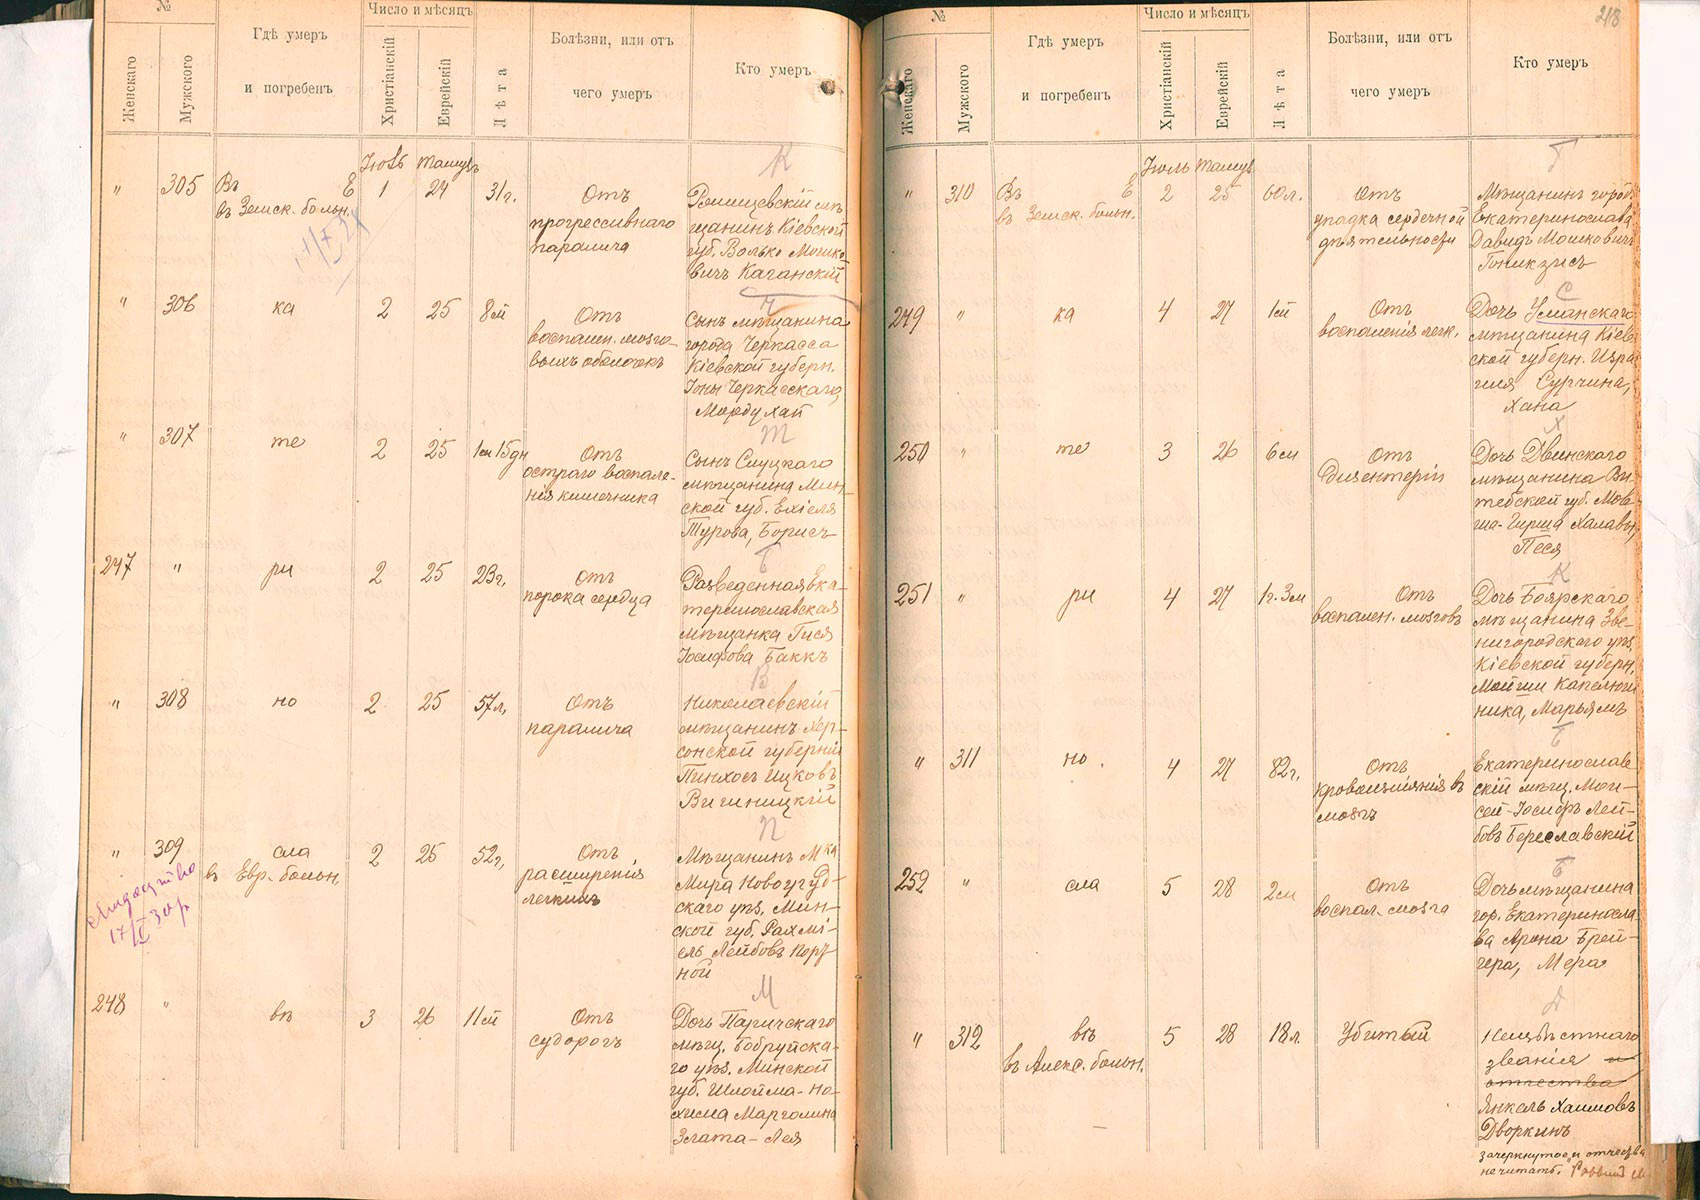 №
Число и мѣсяцъ
Женскаго
Мужского
Гдѣ умеръ
и погребенъ
Христіанскій
Еврейскій
Лѣта
Болѣзни, или отъ
чего умеръ
Кто умеръ
Іюль Тамузъ
К
" 305
Въ Е
въ Земск. больн.
1 24 31 г.
Отъ
прогрессивнаго
паралича
мѣ-
щанинъ Кіевской
губ. Волько Мошко-
вичъ Каганскій
Ч
" 306 ка 2 25 8 м
Отъ
воспален. мозго-
выхъ оболочкъ
Сынъ мѣщанина
города Черкасса
Кіевской губерн.
Іоны Черкасскаго,
Мордухай
Т
" 307 те 2 25 1 м 15 дн
Отъ
остраго воспале-
нія кишечника
Сынъ Слуцкаго
мѣщанина Мин-
ской губ. Ехіеля
Турова, Борисъ
Б
247 " ри 2 25 23 г.
Отъ
порока сердца
Разведенная Ека-
теринославская
мѣщанка Гися
Іосифова Баккъ
В
" 308 но 2 25 57 л.
Отъ
паралича
Николаевскій
мѣщанинъ Хер-
сонской губерніи
Пинхосъ Ицковъ
Вигиницкій
П
" 309 сла
въ Евр. больн.
2 25 52 г.
Отъ
расширенія
легкихъ
Мѣщанинъ Мка
Мира Новогруд-
скаго уѣз. Мин-
ской губ. Рахмі-
ель Лейбовъ Пор
ной
17/IV 30 г
М
248 " въ 3 26 11 м
Отъ
судорогъ
Дочь Паричскаго
мѣщ. Бобруйска-
го уѣз. Минской
губ. Шлойма-Но-
хима Марголина
Злата-Лея
218
№
Число и мѣсяцъ
Женскаго
Мужского
Гдѣ умеръ
и погребенъ
Христіанскій
Еврейскій
Лѣта
Болѣзни, или отъ
чего умеръ
Кто умеръ
Іюль Тамузъ
Г
" 310
Въ Е
въ Земск. больн.
2 25 60 л.
Отъ
упадка сердечной
дѣятельности
Мѣщанинъ город.
Екатеринослава
Давидъ Мошковичъ
С
249 " ка 4 27 1 м
Отъ
воспаленія легк.
Дочь Уманскаго
мѣщанина Кіев-
ской губерн. Изра-
иля Сурчина,
Хана
Х
250 " те 3 26 6 м
Отъ
дизентеріи
Дочь Двинскаго
мѣщанина Ви-
тебской губ. Мов-
ша-Гирша Халавы,
Песя
К
251 " ри 4 27 1 г. 3 м
Отъ
воспален. мозговъ
Дочь Боярскаго
мѣщанина Зве-
нигородскаго уѣз.
Кіевской губерн.
Мойши Капелюш-
ника, Марьямъ
Б
" 311 но 4 27 82 г.
Отъ
кровоизліянія въ
мозгъ
Екатеринослав-
скій мѣщ. Мои-
сей-Іосифъ Лей-
бовъ Береславскій
Б
252 " сла 5 28 2 м
Отъ
воспал. мозга
Дочь мѣщанина
гор. Екатериносла-
ва Арона Брей-
гера, Мера
Д
" 312 въ
въ Алекс. больн.
5 28 18 л.
Убитый
Неизвѣстнаго
званія и
отчества
Янкель Хаимовъ
Дворкинъ
зачеркнутое „и отчества
не читать." Раввинъ